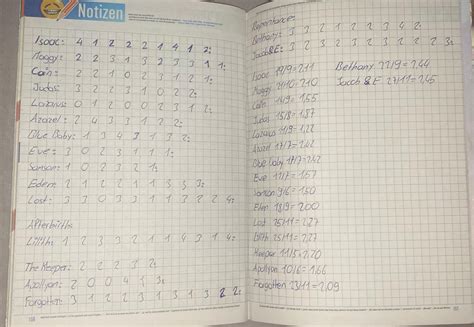 Notizen
Isaac: 4 1 2 2 2 1 4 1 2:
Maggy: 2 2 3 1 3 2 3 3 1 1:
Cain: 2 2 1 0 2 3 1 2 1:
Judas: 3 2 2 3 1 0 2 2:
Lazarus: 0 1 2 0 0 2 3 1 2:
Azazel: 2 4 3 3 1 2 2:
Blue Baby: 1 3 4 3 1 3 2:
Eve: 3 0 2 3 1 1 1:
Samson: 1 0 2 3 2 1:
Eden: 2 1 2 2 1 1 3 3 3:
Lost: 3 0 3 0 3 1 1 3 2 2 4:
Afterbirth:
Lilith: 1 2 3 3 2 1 1 4 3 1 4:
The Keeper: 2 2 2 3 2:
Apollyon: 2 0 0 4 1 3:
Forgotten: 3 1 2 2 3 1 3 1 3 2 2:
Repentance:
Bethany: 3 2 1 2 1 2 3 4 2:
Jacob&E: 3 2 3 2 3 2 3 2 2 2 3:
Isaac 19/9=2.11
Maggy 21/10=2.10
Cain 14/9=1.55
Judas 15/8=1.87
Lazarus 11/9=1.22
Azazel 17/7=2.42
Blue Baby 17/7=2.42
Eve 11/7=1.57
Samson 9/6=1.50
Eden 18/9=2.00
Lost 25/11=2.27
Lilith 25/11=2.27
Keeper 11/5=2.20
Apollyon 10/6=1.66
Forgotten 23/11=2.09
Bethany 22/9=2.44
Jacob &E 27/11=2.45